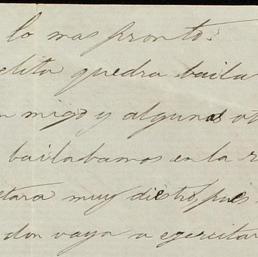 lo mas pronto.
quedra baila
migo y algunas ot
bailabamos en la r
muy diestro, pues
don vaya a egecutar